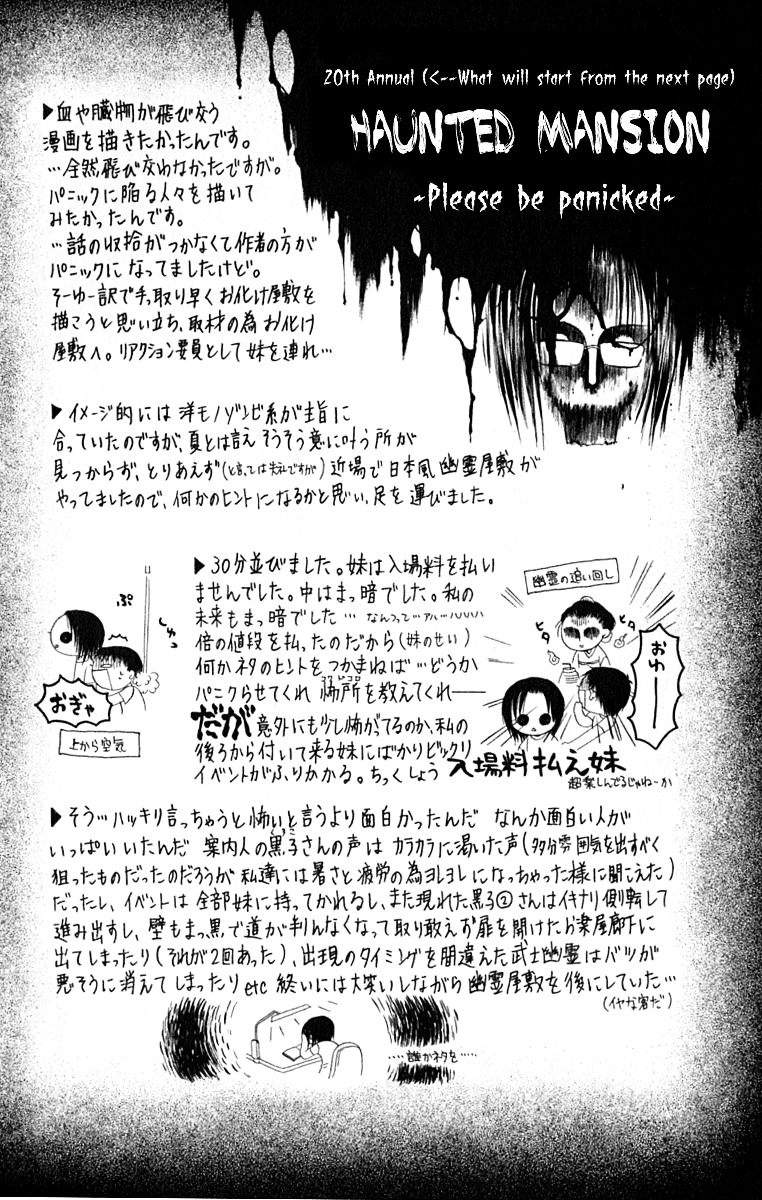 20th Annual (<--What will start from the next page)
HAUNTED MANSION
~Please be panicked~
▶血や臓物が飛び交う
漫画を描きたかったんです。
…全然飛び交わなかったですが。
パニックに陥る人々を描いて
みたかったんです。
…話の収拾がつかなくて作者の方が
パニックになってましたけど。
そーゆー訳で手っ取り早くお化け屋敷を
描こうと思い立ち、取材の為お化け
屋敷へ。リアクション要員として妹を連れ…
▶イメージ的には洋モノゾンビ系が主旨に
合っていたのですが、夏とは言えそうそう意に叶う所が
見つからず、とりあえず(と言っては失礼ですが)近場で日本風幽霊屋敷が
やってましたので、何かのヒントになるかと思い、足を運びました。
▶30分並びました。妹は入場料を払い
ませんでした。中はまっ暗でした。私の
未来もまっ暗でした…なんつって…アハ…ハハハハ
倍の値段を払ったのだから(妹のせい)
何かネタのヒントをつかまねば…どうか
パニクらせてくれ 怖所を教えてくれ――
だが意外にも少し怖がってるのか、私の
後ろから付いて来る妹にばかりビックリ
イベントがふりかかる。ちっくしょう 入場料払え妹
超楽しんでるじゃねーか
ぷ
しゅっ
おぎゃ
上から空気
幽霊の追い回し
ヒタ
ヒタ
おわ――
▶そう…ハッキリ言っちゃうと怖いと言うより面白かったんだ なんか面白い人が
いっぱいいたんだ 案内人の黒子さんの声はカラカラに渇いた声(多分雰囲気を出すべく
狙ったものだったのだろうが私達には暑さと疲労の為ヨレヨレになっちゃった様に聞こえた)
だったし、イベントは全部妹に持ってかれるし、また現れた黒子②さんはイキナリ側転して
進み出すし、壁もまっ黒で道が判んなくなって取り敢えず扉を開けたら楽屋廊下に
出てしまったり(それが2回あった)、出現のタイミングを間違えた武士幽霊はバツが
悪そうに消えてしまったりetc 終いには大笑いしながら幽霊屋敷を後にしていた…
(イヤな客だ)
……誰かネタを……